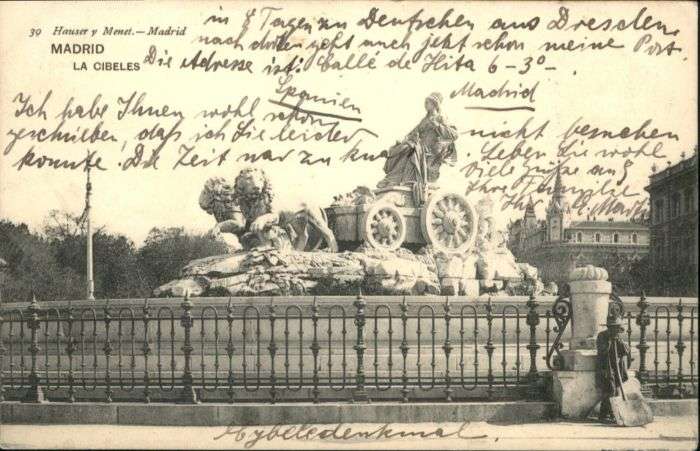 39 Hauser y Menet.—Madrid
MADRID
LA CIBELES
in 8 Tagen zu Deutschen aus Dresden,
nach dort geht auch jetzt schon meine Post.
Die Adresse ist: Calle de Hita 6-3º-
Spanien Madrid
Ich habe Ihnen wohl schon
geschrieben, daß ich Sie leider nicht besuchen
konnte. Die Zeit war zu kurz. Leben Sie wohl
Viele Grüße auch
Ihre Familie
Ihr
Kybeledenkmal.